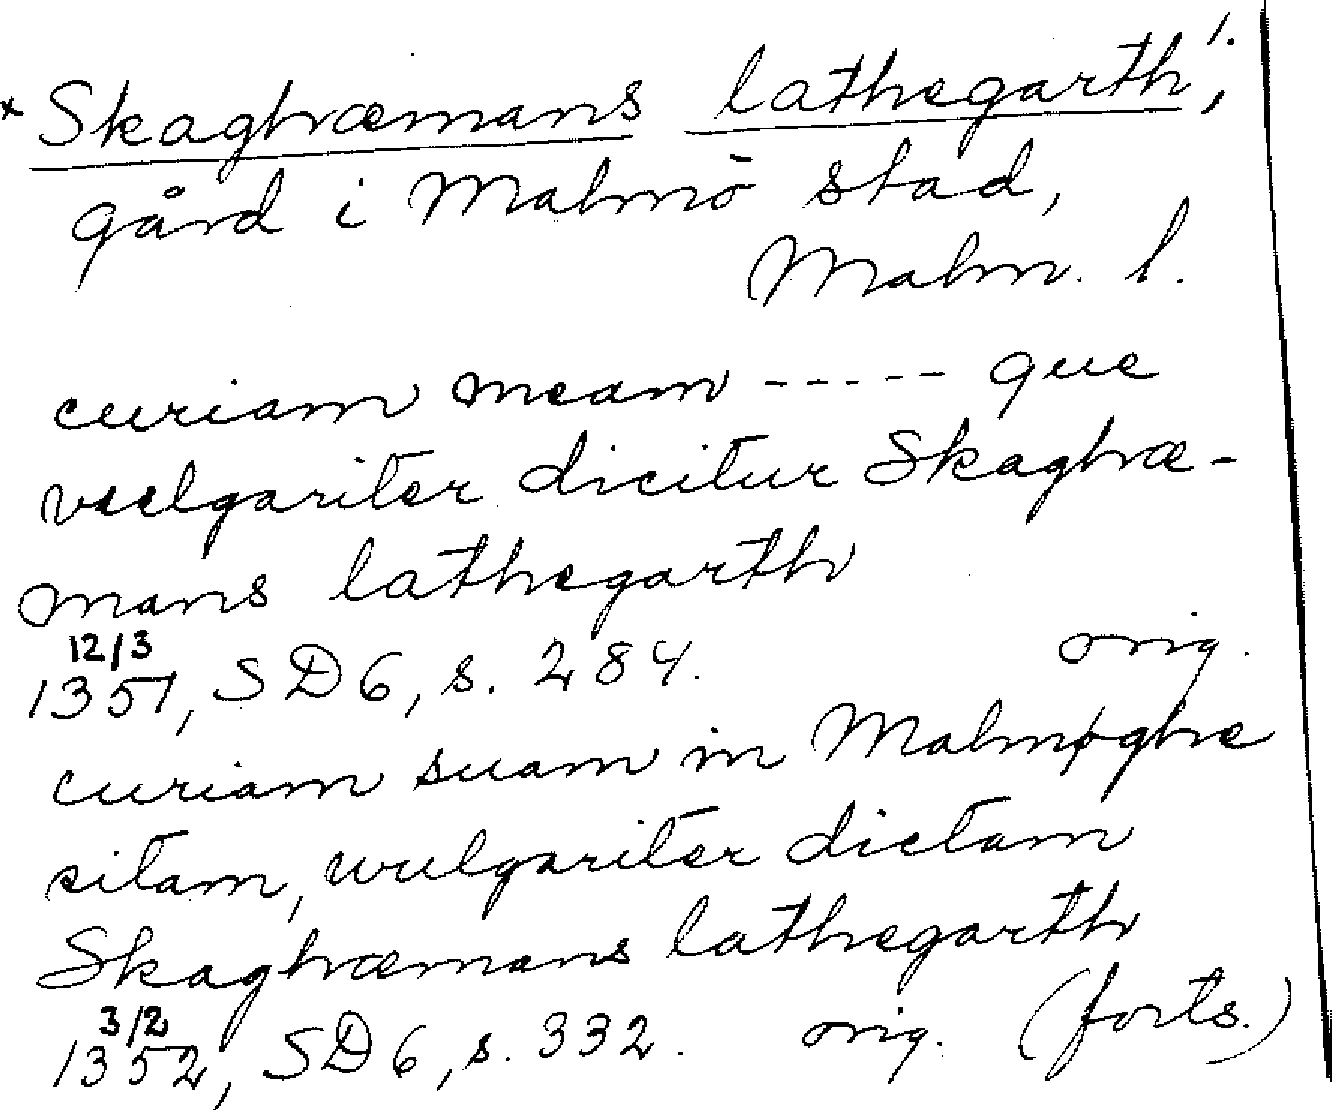 * Skaghræmans lathegarth, 1.
gård i Malmö stad,
Malm. l.
curiam meam ----- que
vulgariter dicitur Skaghræ-
mans lathegarth
12/3
1351, SD6, s. 284. orig.
curiam suam in Malmøghe
sitam, wulgariter dictam
Skaghræmans lathegarth
3/2
1352, SD6, s. 332. orig. (forts.)